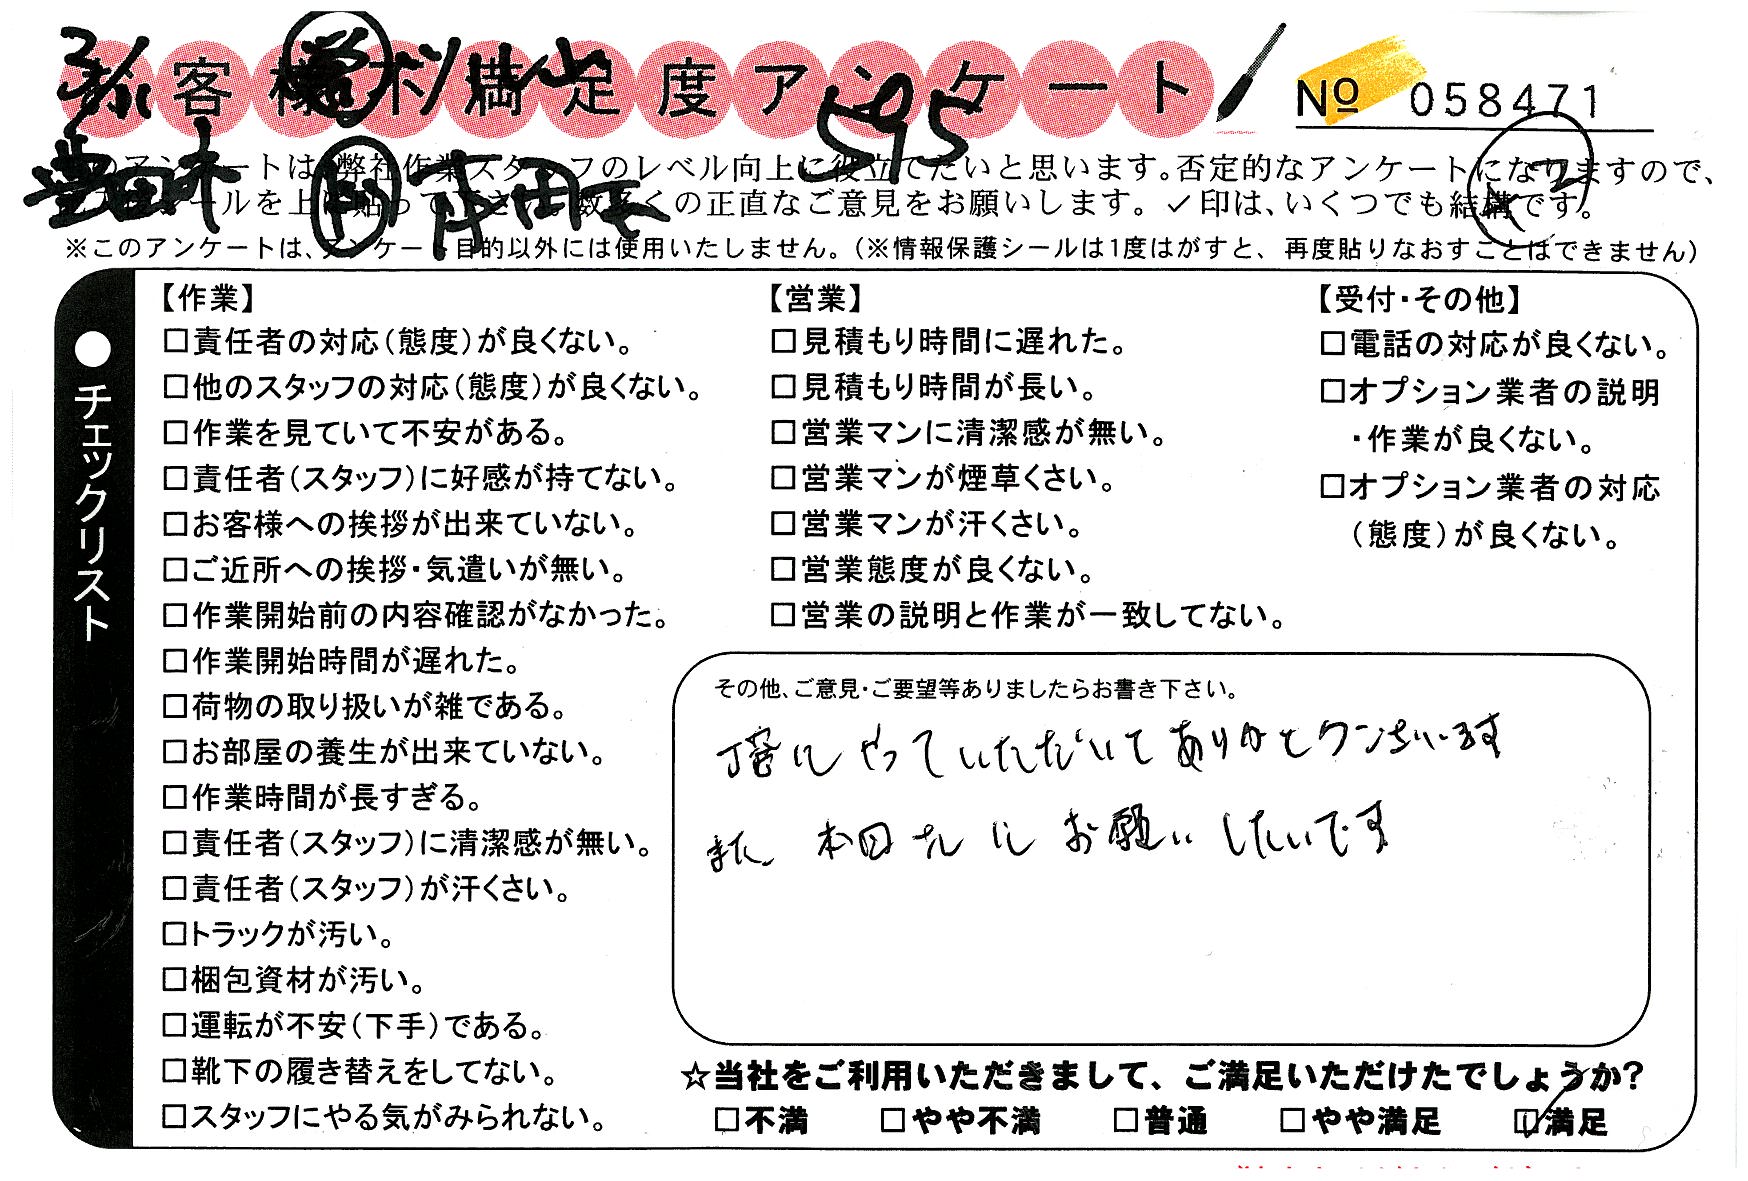 お客様満足度アンケート
595
No 058471
このアンケートは、弊社作業スタッフのレベル向上に役立てたいと思います。否定的なアンケートになりますので、
シールを上に貼って下さい。数多くの正直なご意見をお願いします。✓印は、いくつでも結構です。
※このアンケートは、アンケート目的以外には使用いたしません。(※情報保護シールは1度はがすと、再度貼りなおすことはできません)
●チェックリスト
【作業】
□責任者の対応(態度)が良くない。
□他のスタッフの対応(態度)が良くない。
□作業を見ていて不安がある。
□責任者(スタッフ)に好感が持てない。
□お客様への挨拶が出来ていない。
□ご近所への挨拶・気遣いが無い。
□作業開始前の内容確認がなかった。
□作業開始時間が遅れた。
□荷物の取り扱いが雑である。
□お部屋の養生が出来ていない。
□作業時間が長すぎる。
□責任者(スタッフ)に清潔感が無い。
□責任者(スタッフ)が汗くさい。
□トラックが汚い。
□梱包資材が汚い。
□運転が不安(下手)である。
□靴下の履き替えをしてない。
□スタッフにやる気がみられない。
【営業】
□見積もり時間に遅れた。
□見積もり時間が長い。
□営業マンに清潔感が無い。
□営業マンが煙草くさい。
□営業マンが汗くさい。
□営業態度が良くない。
□営業の説明と作業が一致してない。
【受付・その他】
□電話の対応が良くない。
□オプション業者の説明
・作業が良くない。
□オプション業者の対応
(態度)が良くない。
その他、ご意見・ご要望等ありましたらお書き下さい。
丁寧にやっていただいてありがとうございます
また、本田さんにお願いしたいです
☆当社をご利用いただきまして、ご満足いただけたでしょうか?
□不満 □やや不満 □普通 □やや満足 ☑満足